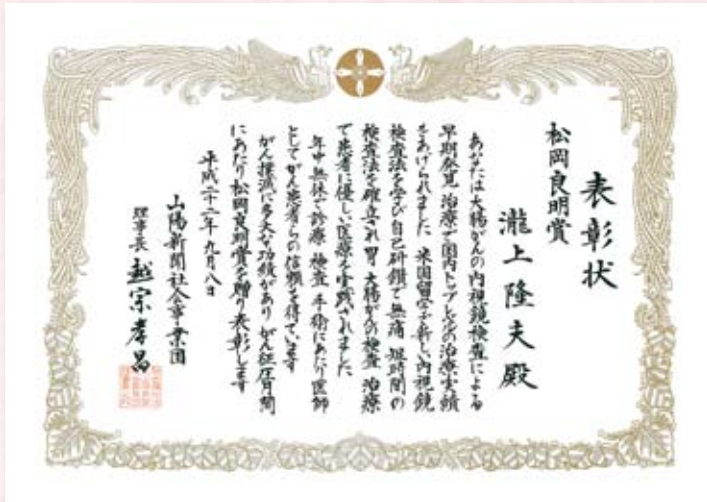 表彰状
松岡良明賞
瀧上隆夫殿
あなたは大腸がんの内視鏡検査による
早期発見 治療で国内トップレベルの治療実績
をあげられました 米国留学で新しい内視鏡
検査法を学び自己研鑽で無痛 短時間の
検査法を確立され胃 大腸がんの検査 治療
で患者に優しい医療を実践されました
年中無休で診療 検査 手術にあたり医師
としてがん患者らの信頼を得ています
がん撲滅に多大な功績があり がん征圧月間
にあたり松岡良明賞を贈り表彰します
平成二十二年九月八日
山陽新聞社会事業団
理事長 越宗孝昌